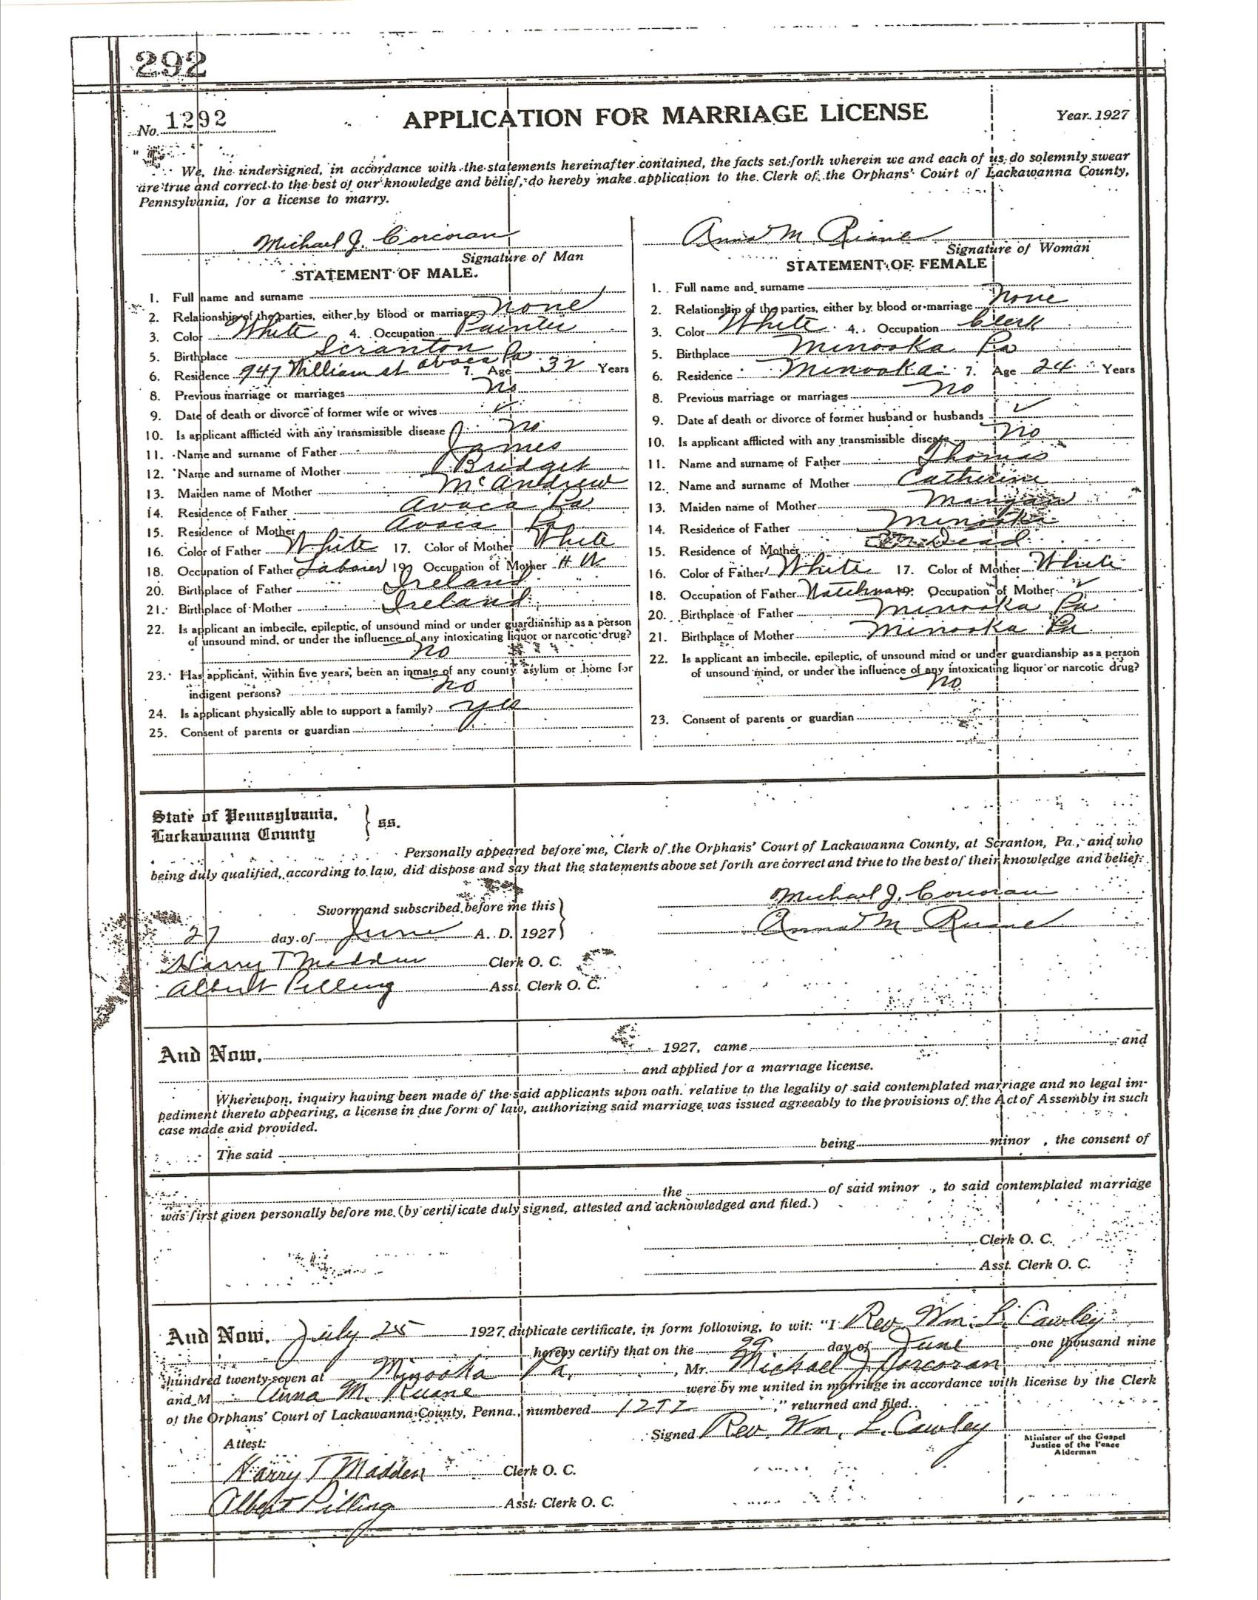 292
No. 1292 APPLICATION FOR MARRIAGE LICENSE Year 1927
We, the undersigned, in accordance with the statements hereinafter contained, the facts set forth wherein we and each of us do solemnly swear
are true and correct to the best of our knowledge and belief, do hereby make application to the Clerk of the Orphans' Court of Lackawanna County,
Pennsylvania, for a license to marry.
Michael J. Corcoran
Signature of Man
STATEMENT OF MALE.
1. Full name and surname
2. Relationship of the parties, either by blood or marriage None
3. Color White 4. Occupation Painter
5. Birthplace Scranton
6. Residence 947 William st Avoca Pa 7. Age 32 Years
8. Previous marriage or marriages No
9. Date of death or divorce of former wife or wives ✓
10. Is applicant afflicted with any transmissible disease No
11. Name and surname of Father James
12. Name and surname of Mother Bridget
13. Maiden name of Mother McAndrew
14. Residence of Father Avoca Pa
15. Residence of Mother Avoca Pa
16. Color of Father White 17. Color of Mother White
18. Occupation of Father Laborer 19. Occupation of Mother H W
20. Birthplace of Father Ireland
21. Birthplace of Mother Ireland
22. Is applicant an imbecile, epileptic, of unsound mind or under guardianship as a person
of unsound mind, or under the influence of any intoxicating liquor or narcotic drug?
No
23. Has applicant, within five years, been an inmate of any county asylum or home for
indigent persons? No
24. Is applicant physically able to support a family? Yes
25. Consent of parents or guardian
Anna M Ruane
Signature of Woman
STATEMENT OF FEMALE
1. Full name and surname
2. Relationship of the parties, either by blood or marriage None
3. Color White 4. Occupation Clerk
5. Birthplace Minooka Pa
6. Residence Minooka 7. Age 24 Years
8. Previous marriage or marriages No
9. Date af death or divorce of former husband or husbands ✓
10. Is applicant afflicted with any transmissible disease No
11. Name and surname of Father Thomas
12. Name and surname of Mother Catherine
13. Maiden name of Mother Mangan
14. Residence of Father Minooka
15. Residence of Mother Dead
16. Color of Father White 17. Color of Mother White
18. Occupation of Father Watchman 19. Occupation of Mother ✓
20. Birthplace of Father Minooka Pa
21. Birthplace of Mother Minooka Pa
22. Is applicant an imbecile, epileptic, of unsound mind or under guardianship as a person
of unsound mind, or under the influence of any intoxicating liquor or narcotic drug?
No
23. Consent of parents or guardian
State of Pennsylvania,
Lackawanna County } ss.
Personally appeared before me, Clerk of the Orphans' Court of Lackawanna County, at Scranton, Pa., and who
being duly qualified, according to law, did dispose and say that the statements above set forth are correct and true to the best of their knowledge and belief.
Michael J. Corcoran
Sworn and subscribed before me this
Anna M Ruane
27 day of June A. D. 1927
Harry T Madden Clerk O. C.
Albert Pilling Asst. Clerk O. C.
And Now, 1927, came and
and applied for a marriage license.
Whereupon, inquiry having been made of the said applicants upon oath, relative to the legality of said contemplated marriage and no legal im-
pediment thereto appearing, a license in due form of law, authorizing said marriage was issued agreeably to the provisions of the Act of Assembly in such
case made and provided.
The said being minor , the consent of
the of said minor , to said contemplated marriage
was first given personally before me, (by certificate duly signed, attested and acknowledged and filed.)
Clerk O. C.
Asst. Clerk O. C.
And Now, July 25 1927, duplicate certificate, in form following, to wit: "I Rev. Wm. L. Cawley
hereby certify that on the 29 day of June one thousand nine
hundred twenty-seven at Minooka Pa. , Mr. Michael J Corcoran
and M Anna M. Ruane were by me united in marriage in accordance with license by the Clerk
of the Orphans' Court of Lackawanna County, Penna., numbered 1292 ," returned and filed.
Signed Rev. Wm. L. Cawley
Minister of the Gospel
Justice of the Peace
Alderman
Attest:
Harry T Madden Clerk O. C.
Albert Pilling Asst. Clerk O. C.